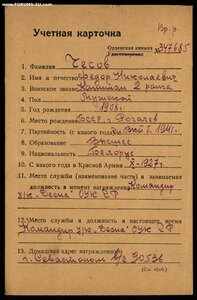 Вр. р.
Учетная карточка
Орденская книжка № 347685
Удостоверения
1. Фамилия Чесов
2. Имя и отчество Федор Николаевич
3. Воинское звание Капитан 2 ранга
4. Пол Мужской
5. Год рождения 1908 г.
6. Место рождения г. Рогачев
7. Партийность (с какого года) 1941 г.
8. Образование Высшее
9. Национальность Белорус
10. С какого года в Красной Армии X-1927 г.
11. Место службы (наименование части) и занимаемая
должность в момент награждения Командир
"Десна" ОУК СФ
12. Место службы и должность в настоящее время
Командир "Десна" ОУК СФ
13. Домашний адрес награжденного
г. Севастополь в/ч 90536
(См. н/об.)